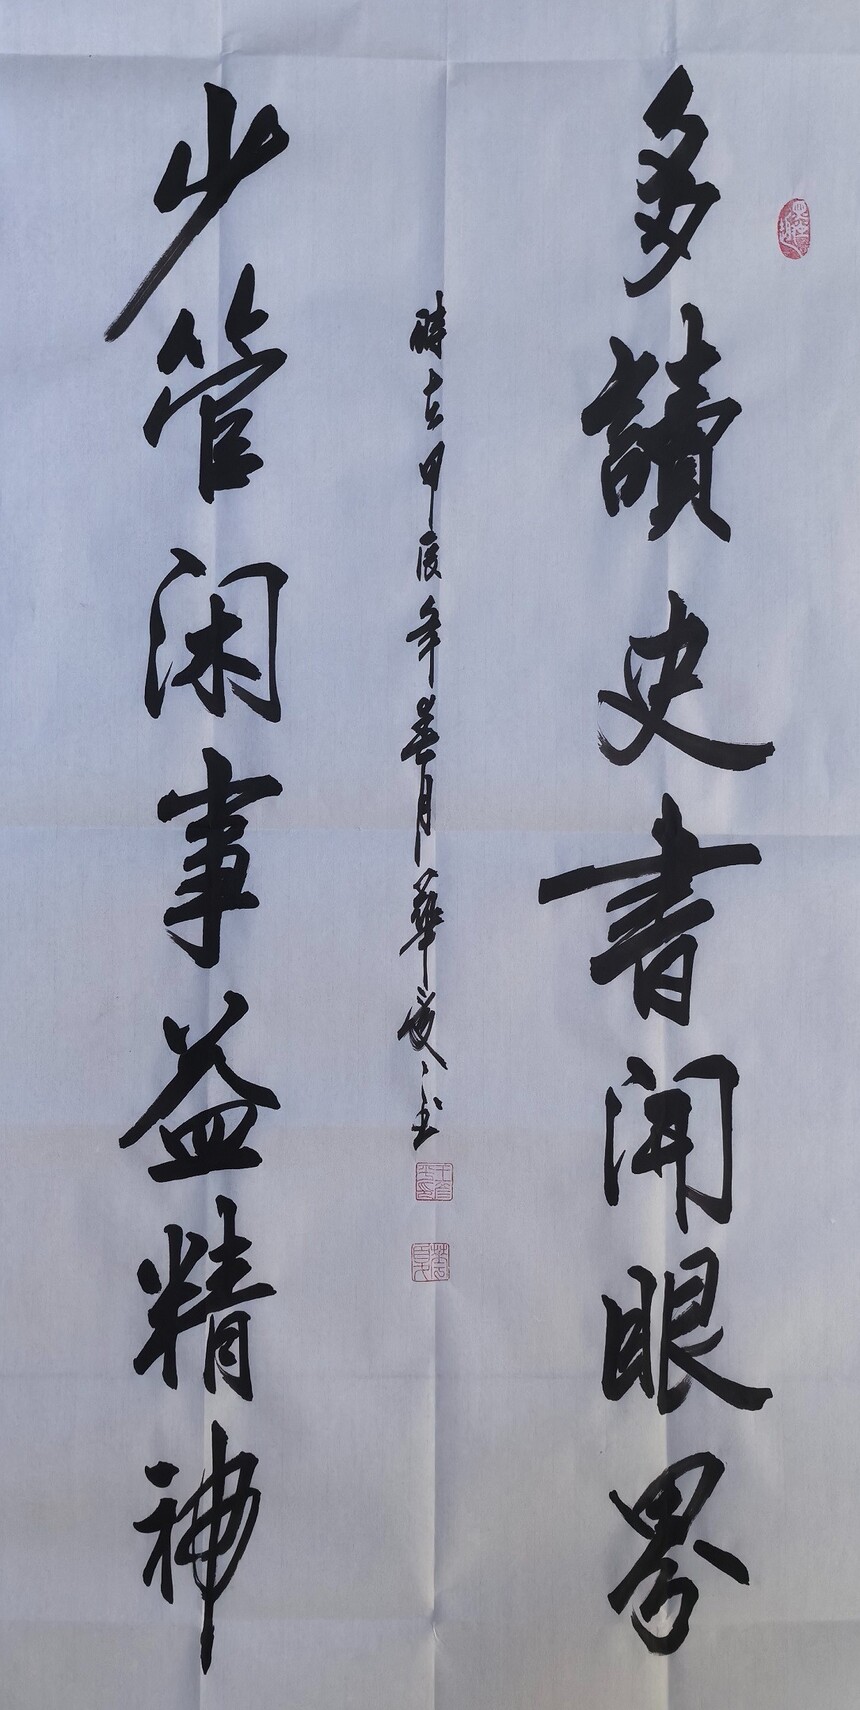 多讀史書開眼界
時在甲辰年春月華
少管闲事益精神